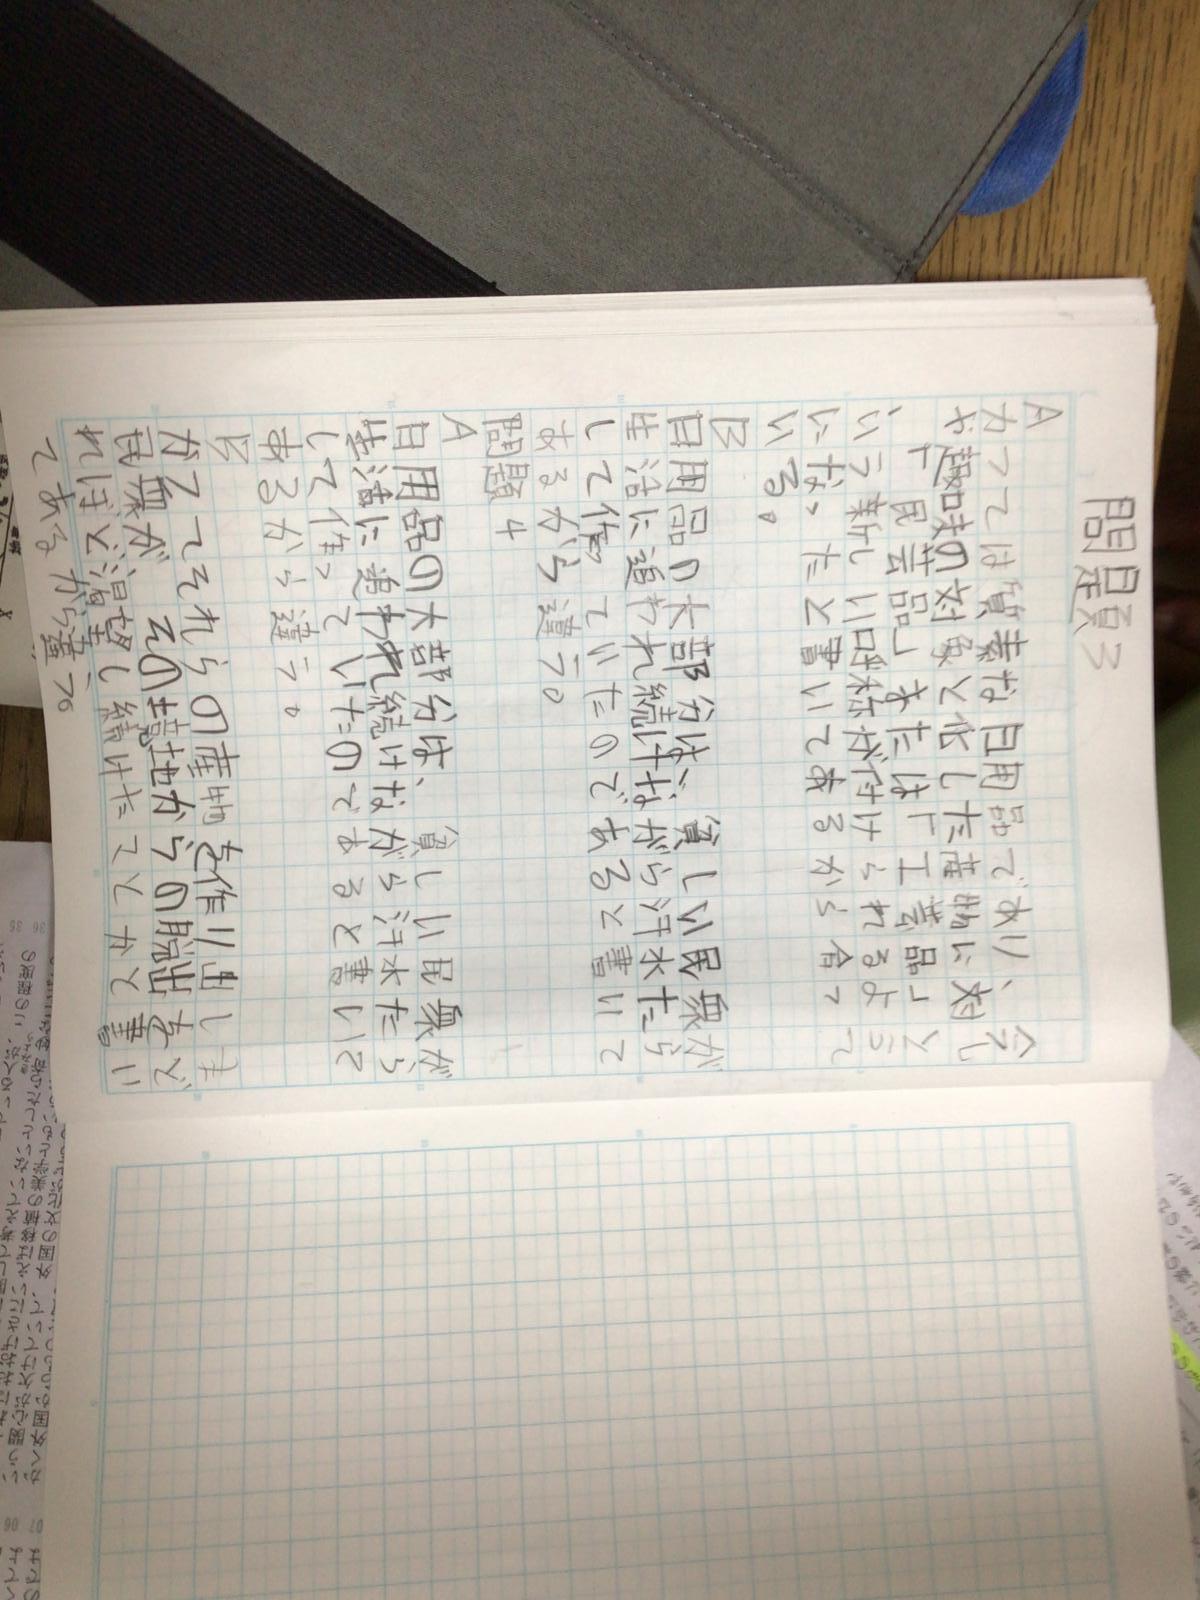 問題3
A
かつては質素な日用品であり、今
や趣味の対象と化した産物に対し
、「民芸品」または「工芸品」と
いう新しい呼称が付けられるよう
になったと書いてあるから合って
いる。
B
日用品の大部分は、貧しい民衆が
生活に追われ続けながら汗水たら
して作っていたのであると書いて
あるから違う。
問題4
A
日用品の大部分は、貧しい民衆が
生活に追われ続けながら汗水たら
して作っていたのであると書いて
あるから違う。
B
かつてこれらの産物を作り出しも
民衆が その境地からの脱出をど
れほど渇望し続けたことかと書い
てあるから違う。